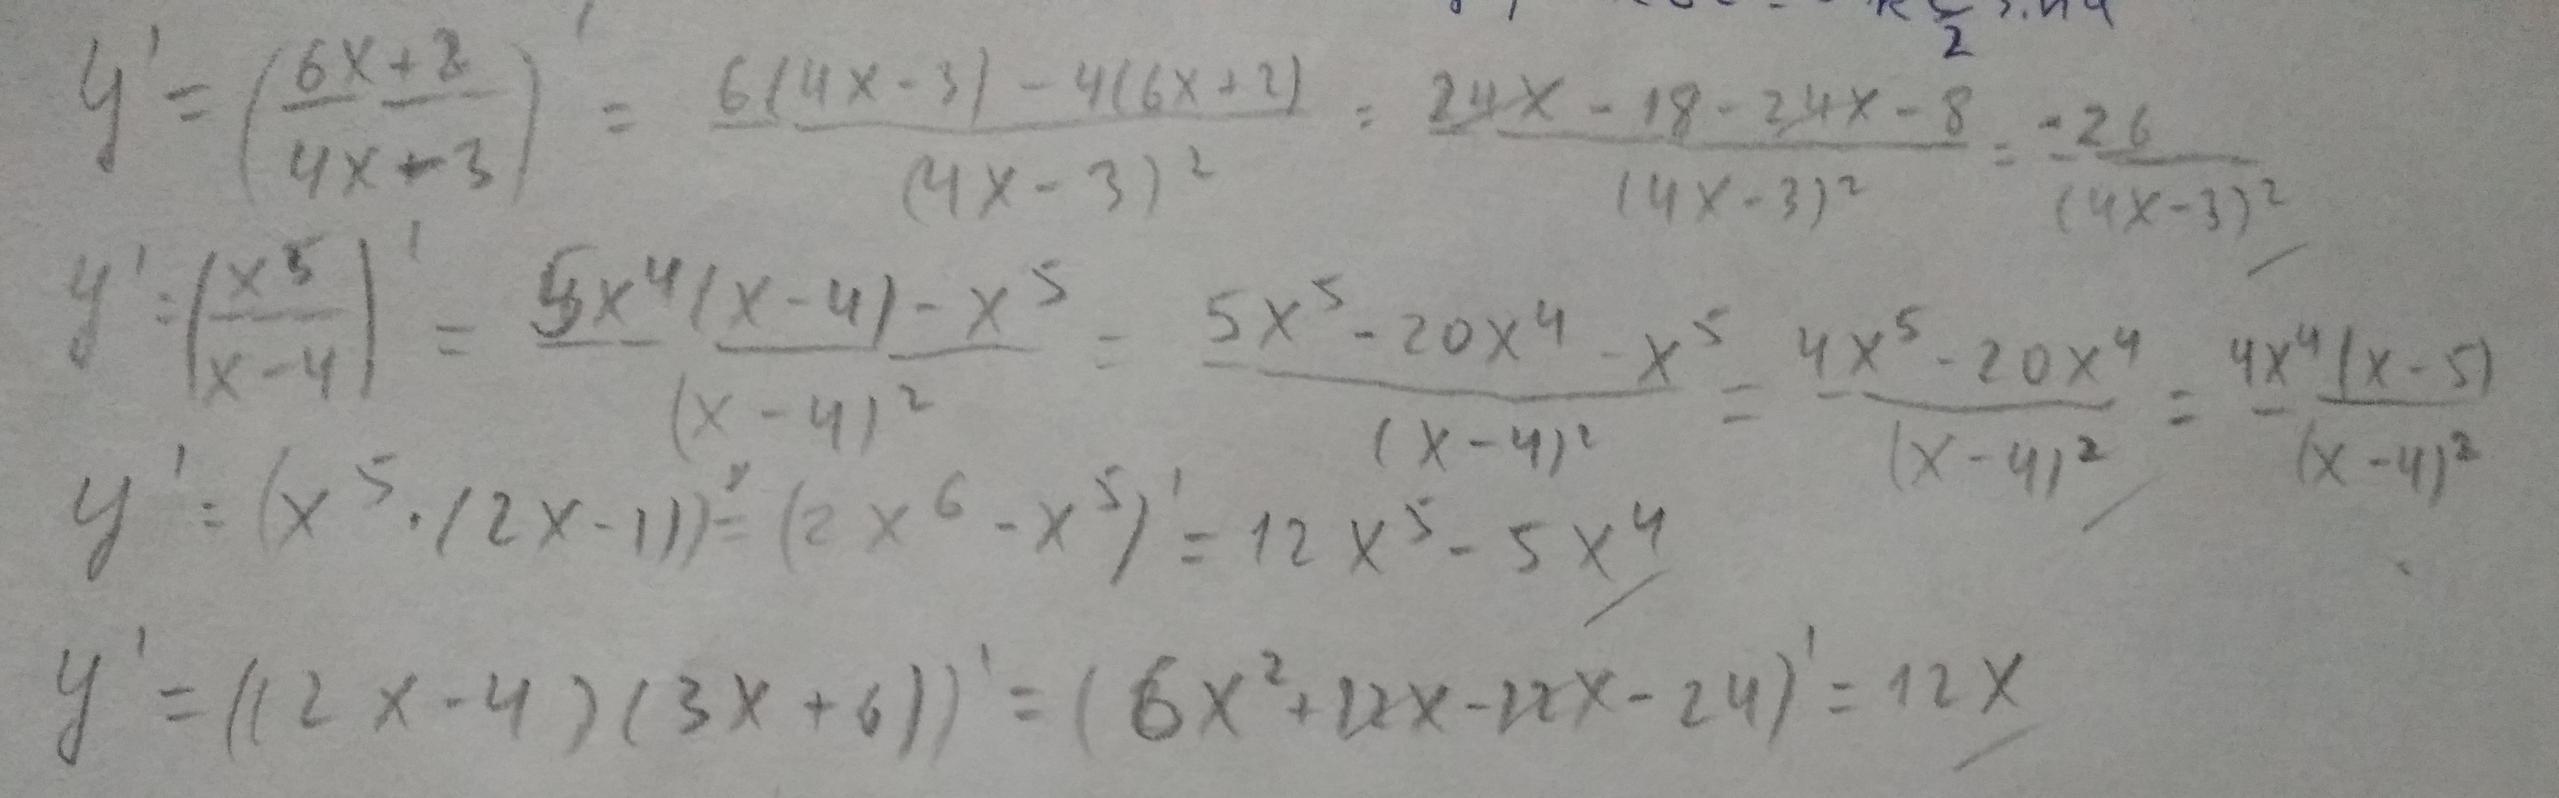 y' = ((6x+2)/(4x-3))' = (6(4x-3)-4(6x+2))/(4x-3)² = (24x-18-24x-8)/(4x-3)² = -26/(4x-3)²
y' = (x⁵/(x-4))' = (5x⁴(x-4)-x⁵)/(x-4)² = (5x⁵-20x⁴-x⁵)/(x-4)² = (4x⁵-20x⁴)/(x-4)² = 4x⁴(x-5)/(x-4)²
y' = (x⁵·(2x-1))' = (2x⁶-x⁵)' = 12x⁵-5x⁴
y' = ((2x-4)(3x+6))' = (6x²+12x-12x-24)' = 12x